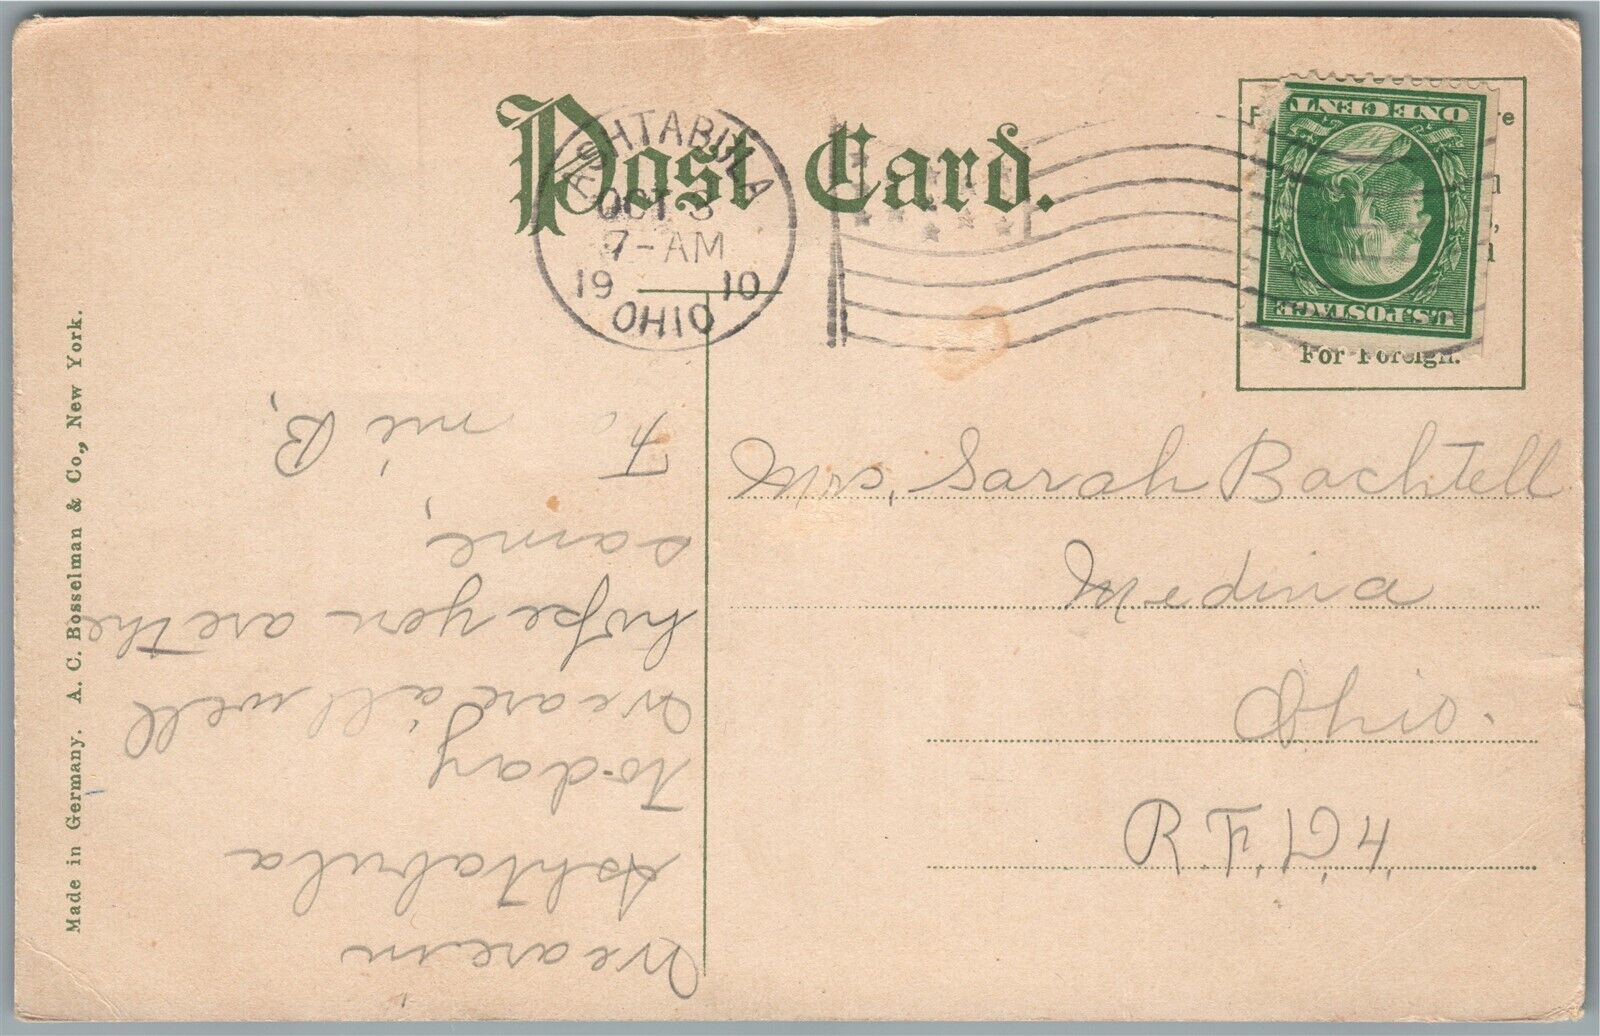 Post Card.
ASHTABULA
OCT 3
7-AM
1910
OHIO
ONE CENT
U.S. POSTAGE
For Foreign.
Made in Germany. A. C. Bosselman & Co., New York.
Mrs. Sarah Bachtell
Medina
Ohio.
R.F.D. 4.
We are in
Ashtabula
to-day
We are all well
hope you are the
same,
B,